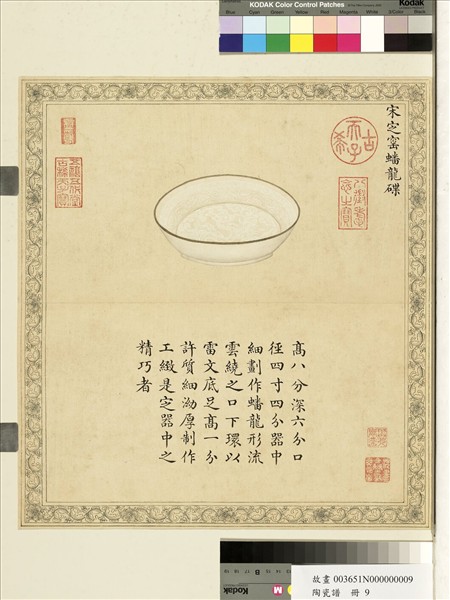 KODAK Color Control Patches
Kodak
Blue Cyan Green Yellow Red Magenta White 3/Color Black
宋定窰蟠龍碟
古希天子
八徵耄念之寶
五福五代堂古稀天子寶
高八分深六分口
徑四寸四分器中
細劃作蟠龍形流
雲繞之口下環以
雷文底足高一分
許質細泑厚制作
工緻是定器中之
精巧者
B
M
故畫 003651N000000009
陶瓷譜 冊 9